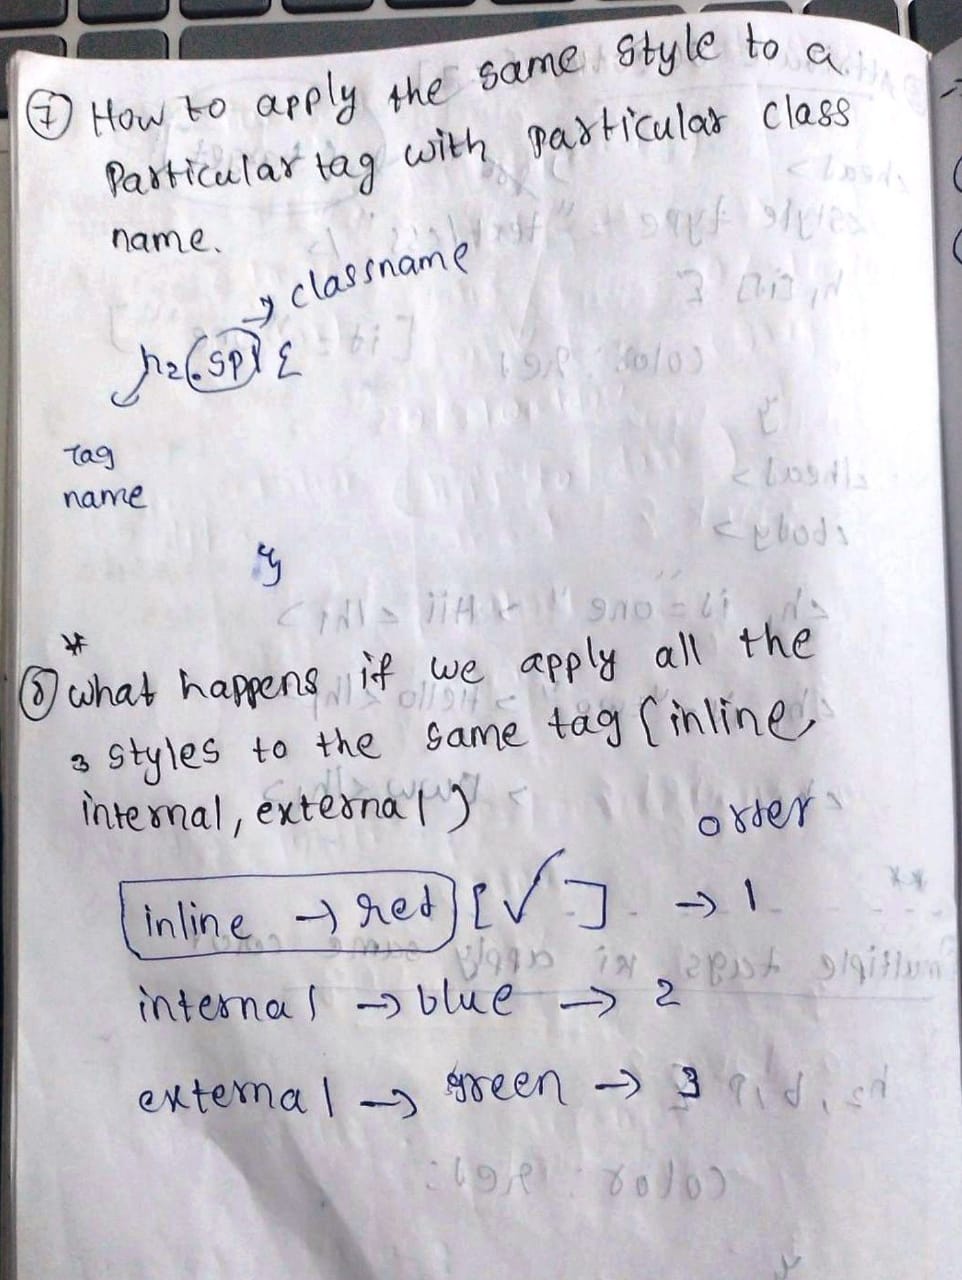 ⑦ How to apply the same style to a
Particular tag with particular class
name.
→ classname
h2(.sp) {
Tag
name
}
*
⑧ what happens if we apply all the
3 styles to the same tag (inline,
internal, external)
order
inline → red [✓] → 1
internal → blue → 2
external → green → 3